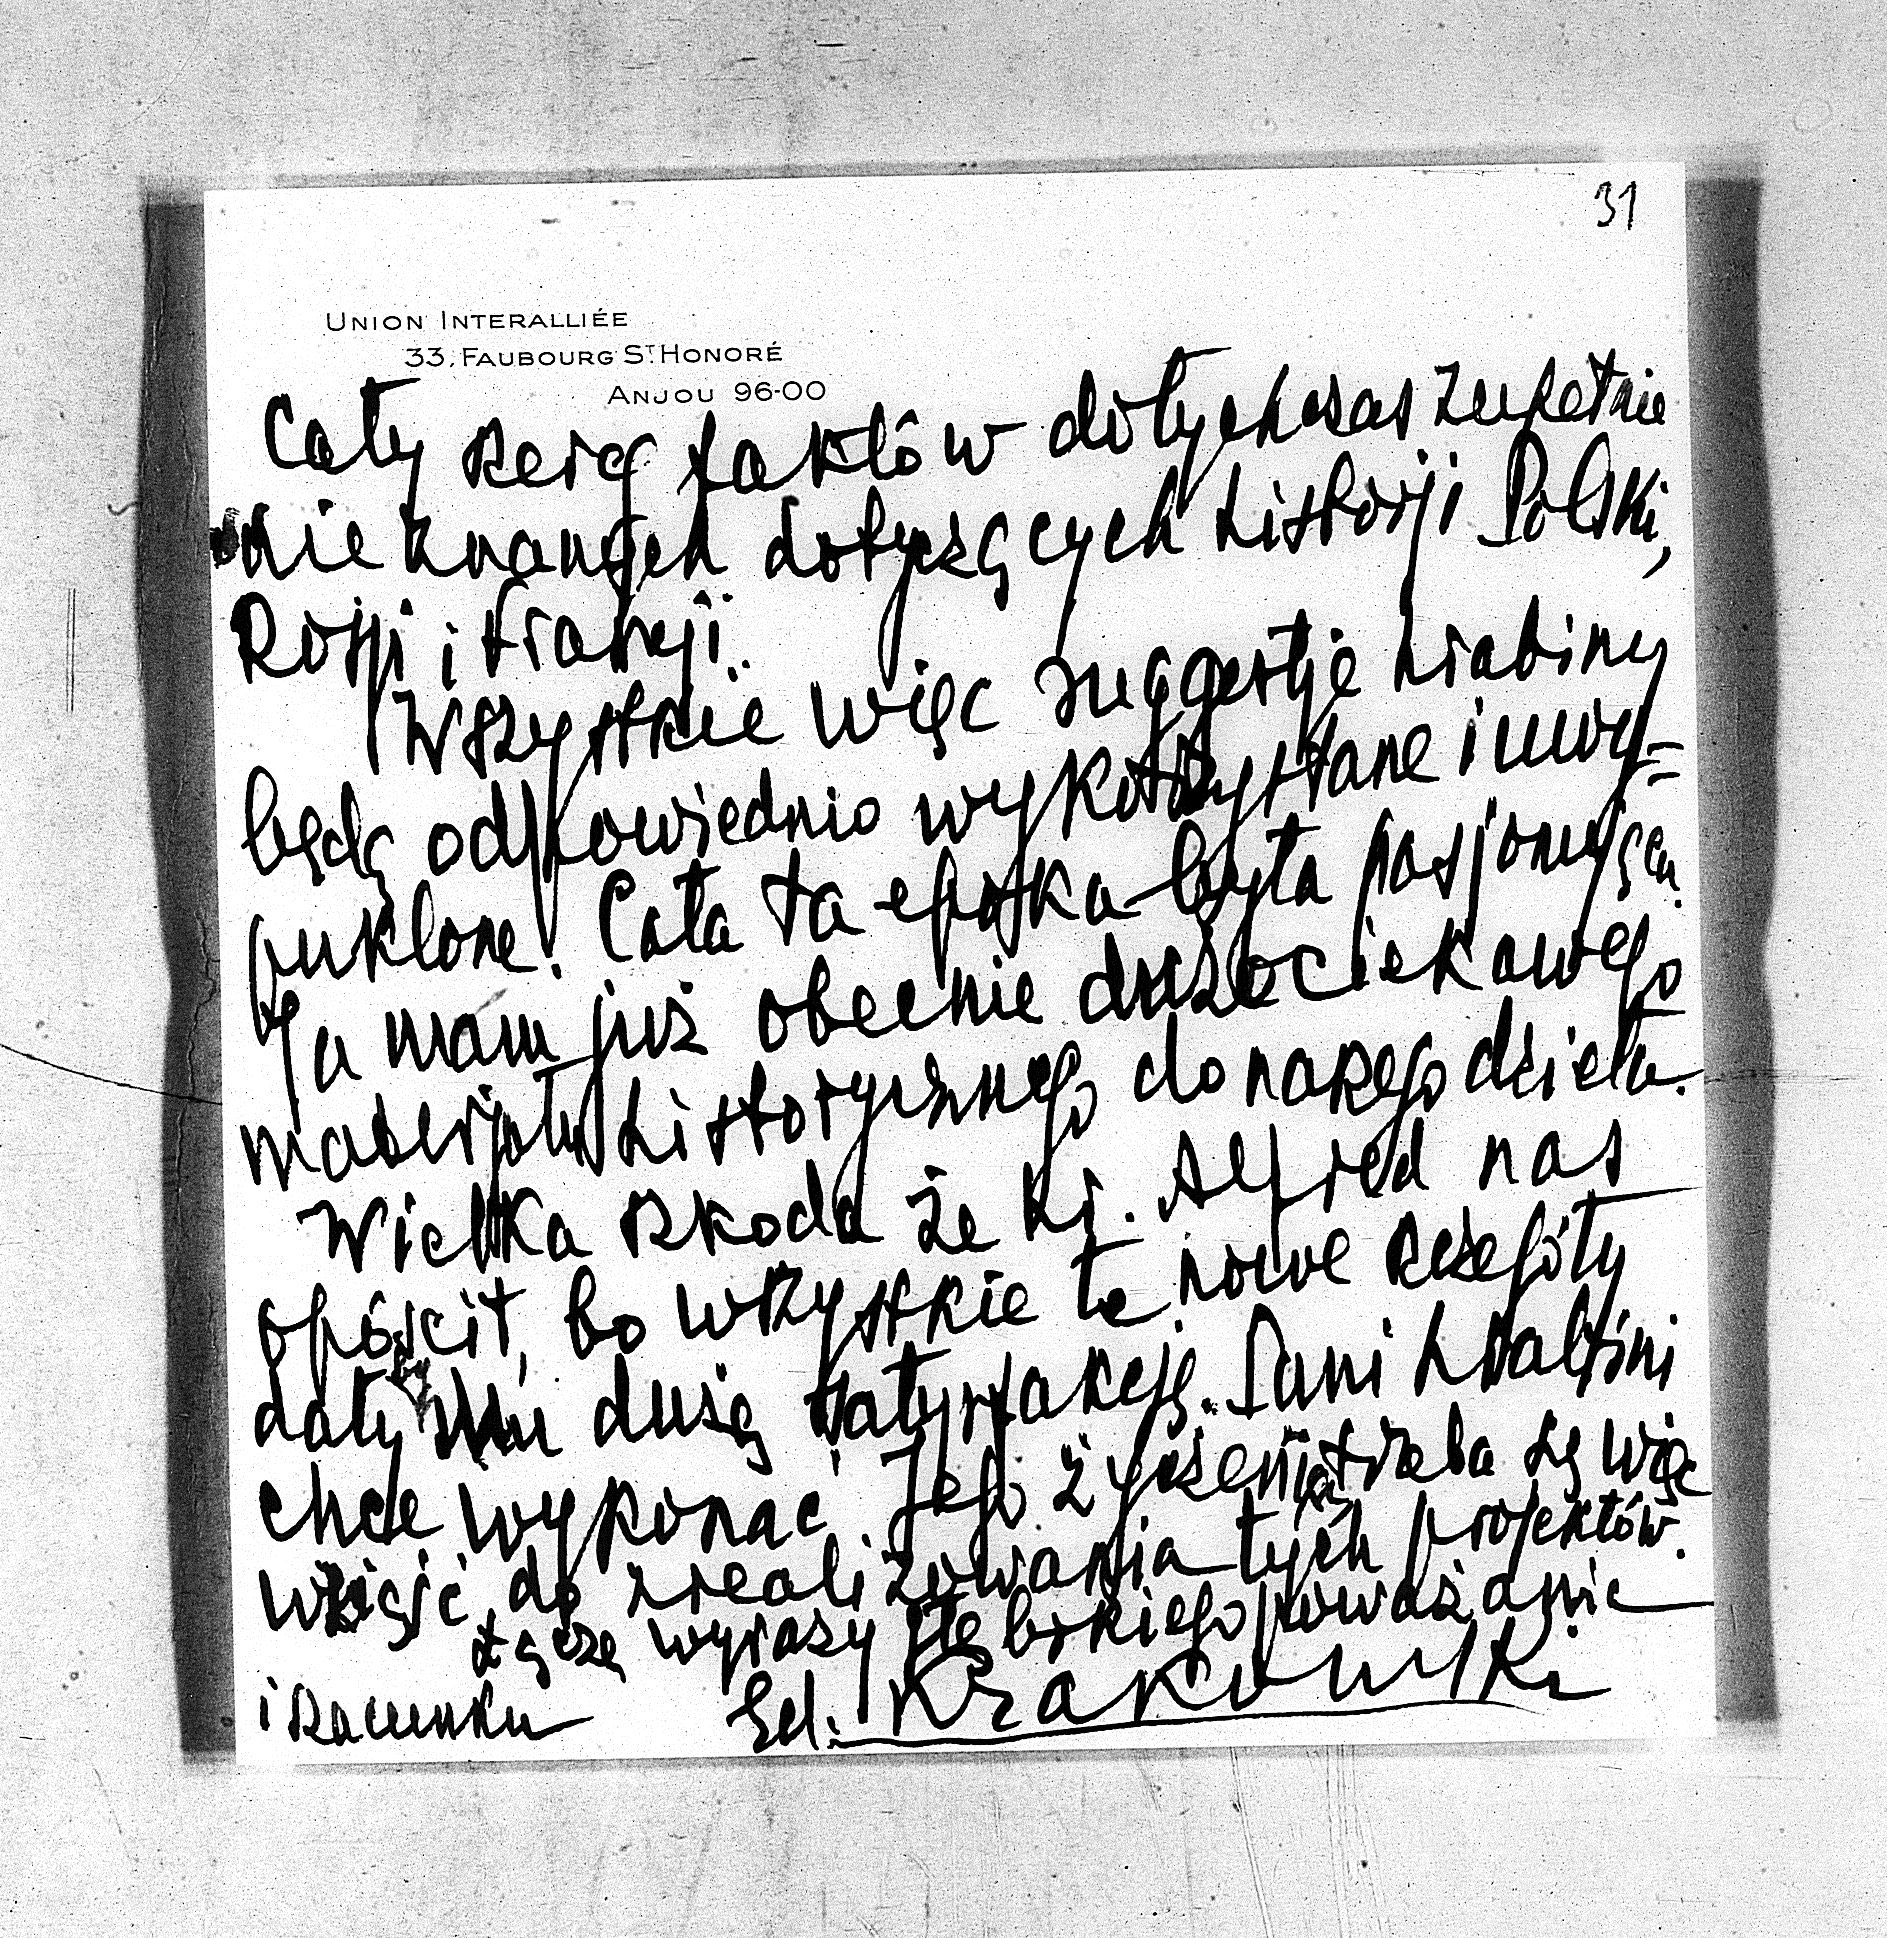 31
UNION INTERALLIÉE
33, FAUBOURG ST. HONORÉ
ANJOU 96-00
Cały szereg faktów dotychczas zupełnie
nieznanych dotyczących historji Polski,
Rosji i Francji.
Wszystkie więc suggestje hrabiny
będą odpowiednio wykorzystane i uwy=
puklone. Cała ta epoka była pasjonująca.
Ja mam już obecnie dużo ciekawego
materjału historycznego do naszego dzieła.
Wielka szkoda że hr. Alfred nas
opuścił, bo wszystkie te nowe szczegóły
dały mu dużą satysfakcję. Pani hrabini
chce wykonać Jego życzenia trzeba się więc
wziąść do zrealizowania tych projektów.
Łączę wyrazy głębokiego poważania
i szacunku Ed. Krakowski